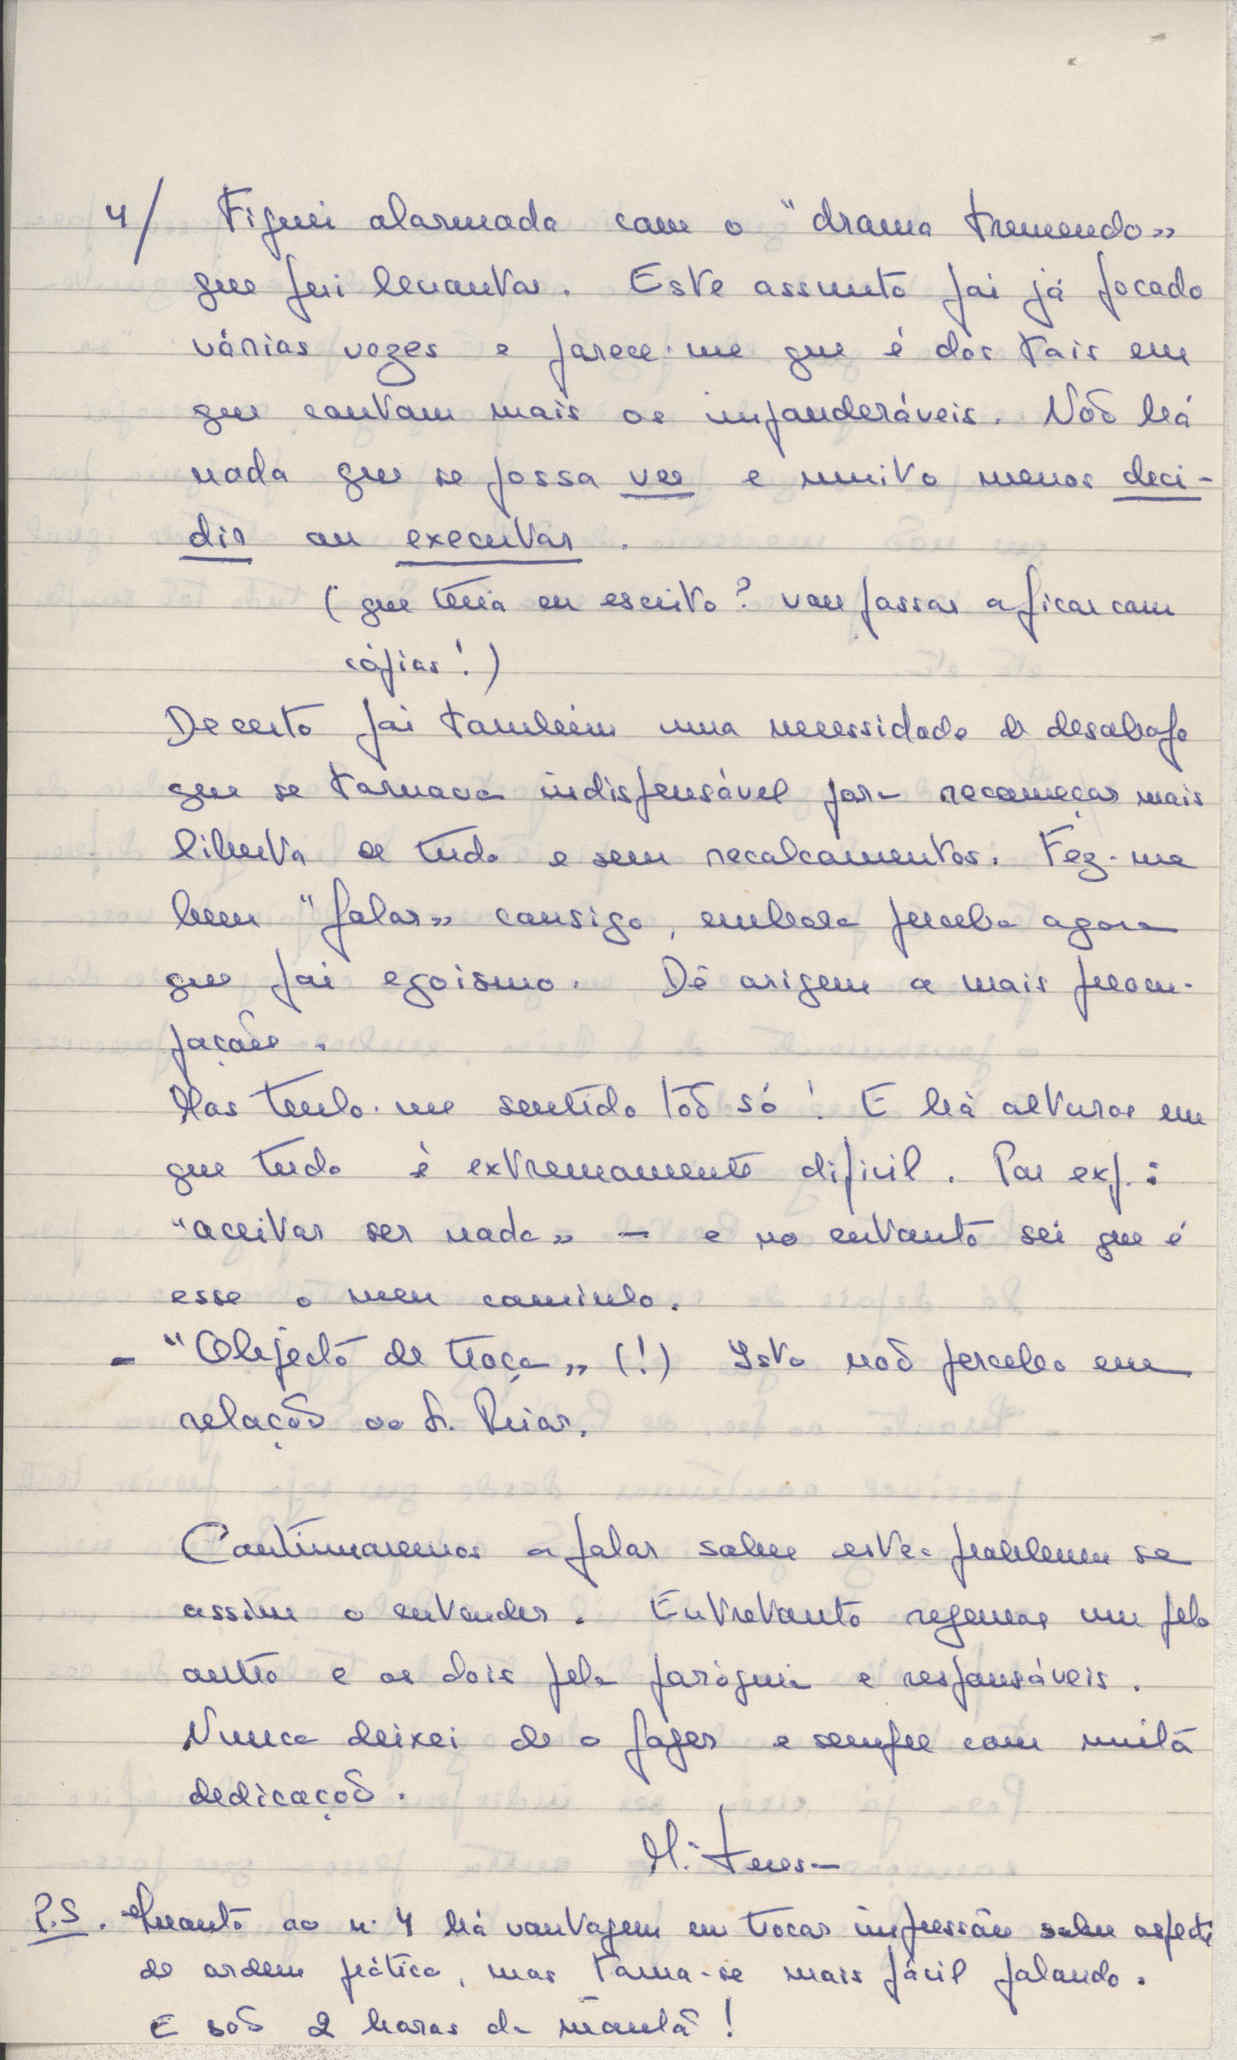 4/ Fiquei alarmada com o "drama tremendo»
que fui levantar. Este assunto foi já focado
várias vezes e parece-me que é dos tais em
que contam mais os imponderáveis. Não há
nada que se possa ver e muito menos deci-
dir ou executar.
(que teria eu escrito? vou passar a ficar com
cópias!)
De certo foi também uma necessidade de desabafo
que se tornava indispensável para recomeçar mais
liberta de tudo e sem recalcamentos. Fez-me
bem "falar» consigo, embora perceba agora
que foi egoismo. Dê origem a mais preocu-
pações.
Mas tenho-me sentido tão só! E há alturas em
que tudo é extremamente dificil. Por exp.:
"aceitar ser nada» — e no entanto sei que é
esse o meu caminho.
- "Objecto de troça» (!) Isto não percebo em
relação ao Sr. Prior.
Continuaremos a falar sobre este problema se
assim o entender. Entretanto rezemos um pelo
outro e os dois pela paróquia e responsáveis.
Nunca deixei de o fazer e sempre com muita
dedicação.
M. Teresa
P.S. Quanto ao n. 4 há vantagem em trocar impressões sobre aspectos
de ordem prática, mas torna-se mais fácil falando.
E são 2 horas da manhã!